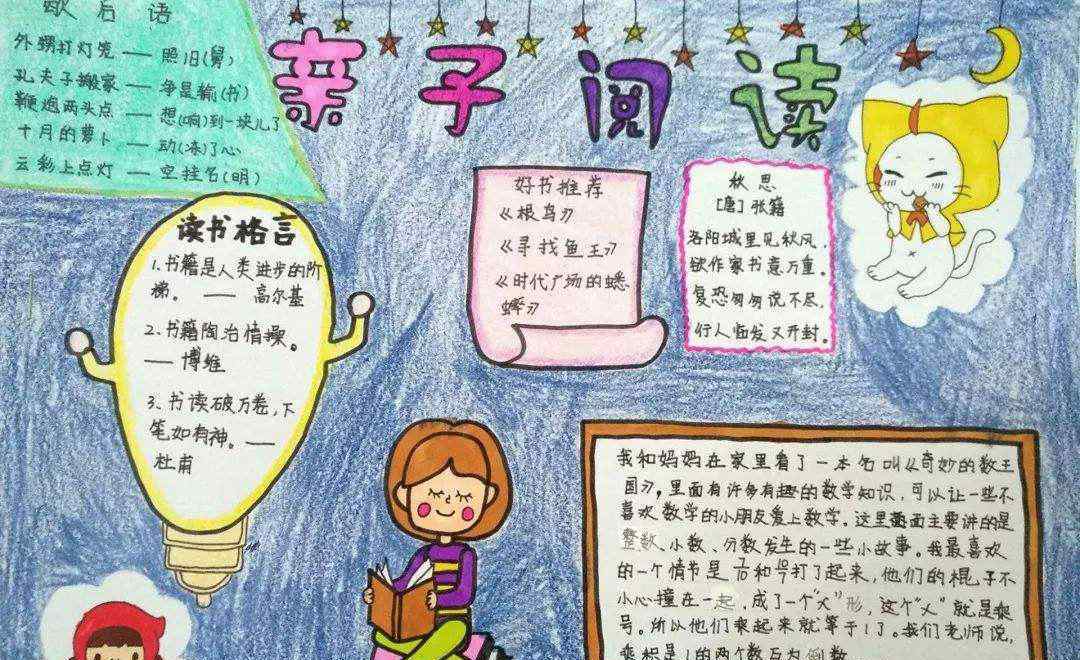 歇后语
外甥打灯笼 —— 照旧(舅)
孔夫子搬家 —— 争是输(书)
鞭炮两头点 —— 想(响)到一块儿了
十月的萝卜 —— 动(冻)了心
云彩上点灯 —— 空挂名(明)
亲子阅读
读书格言
1.书籍是人类进步的阶
梯。 —— 高尔基
2.书籍陶冶情操。
—— 博维
3.书读破万卷,下
笔如有神。——
杜甫
好书推荐
《根鸟》
《寻找鱼王》
《时代广场的蟋
蟀》
秋思
[唐]张籍
洛阳城里见秋风,
欲作家书意万重。
复恐匆匆说不尽,
行人临发又开封。
我和妈妈在家里看了一本名叫《奇妙的数王
国》,里面有许多有趣的数学知识,可以让一些不
喜欢数学的小朋友爱上数学。这里面主要讲的是
整数、小数、分数发生的一些小故事。我最喜欢
的一个情节是 和 打了起来,他们的棍子不
小心撞在一起,成了一个"乂"形,这个"乂"就是乘
号。所以他们乘起来就等于1了。我们老师说,
乘积是1的两个数互为倒数